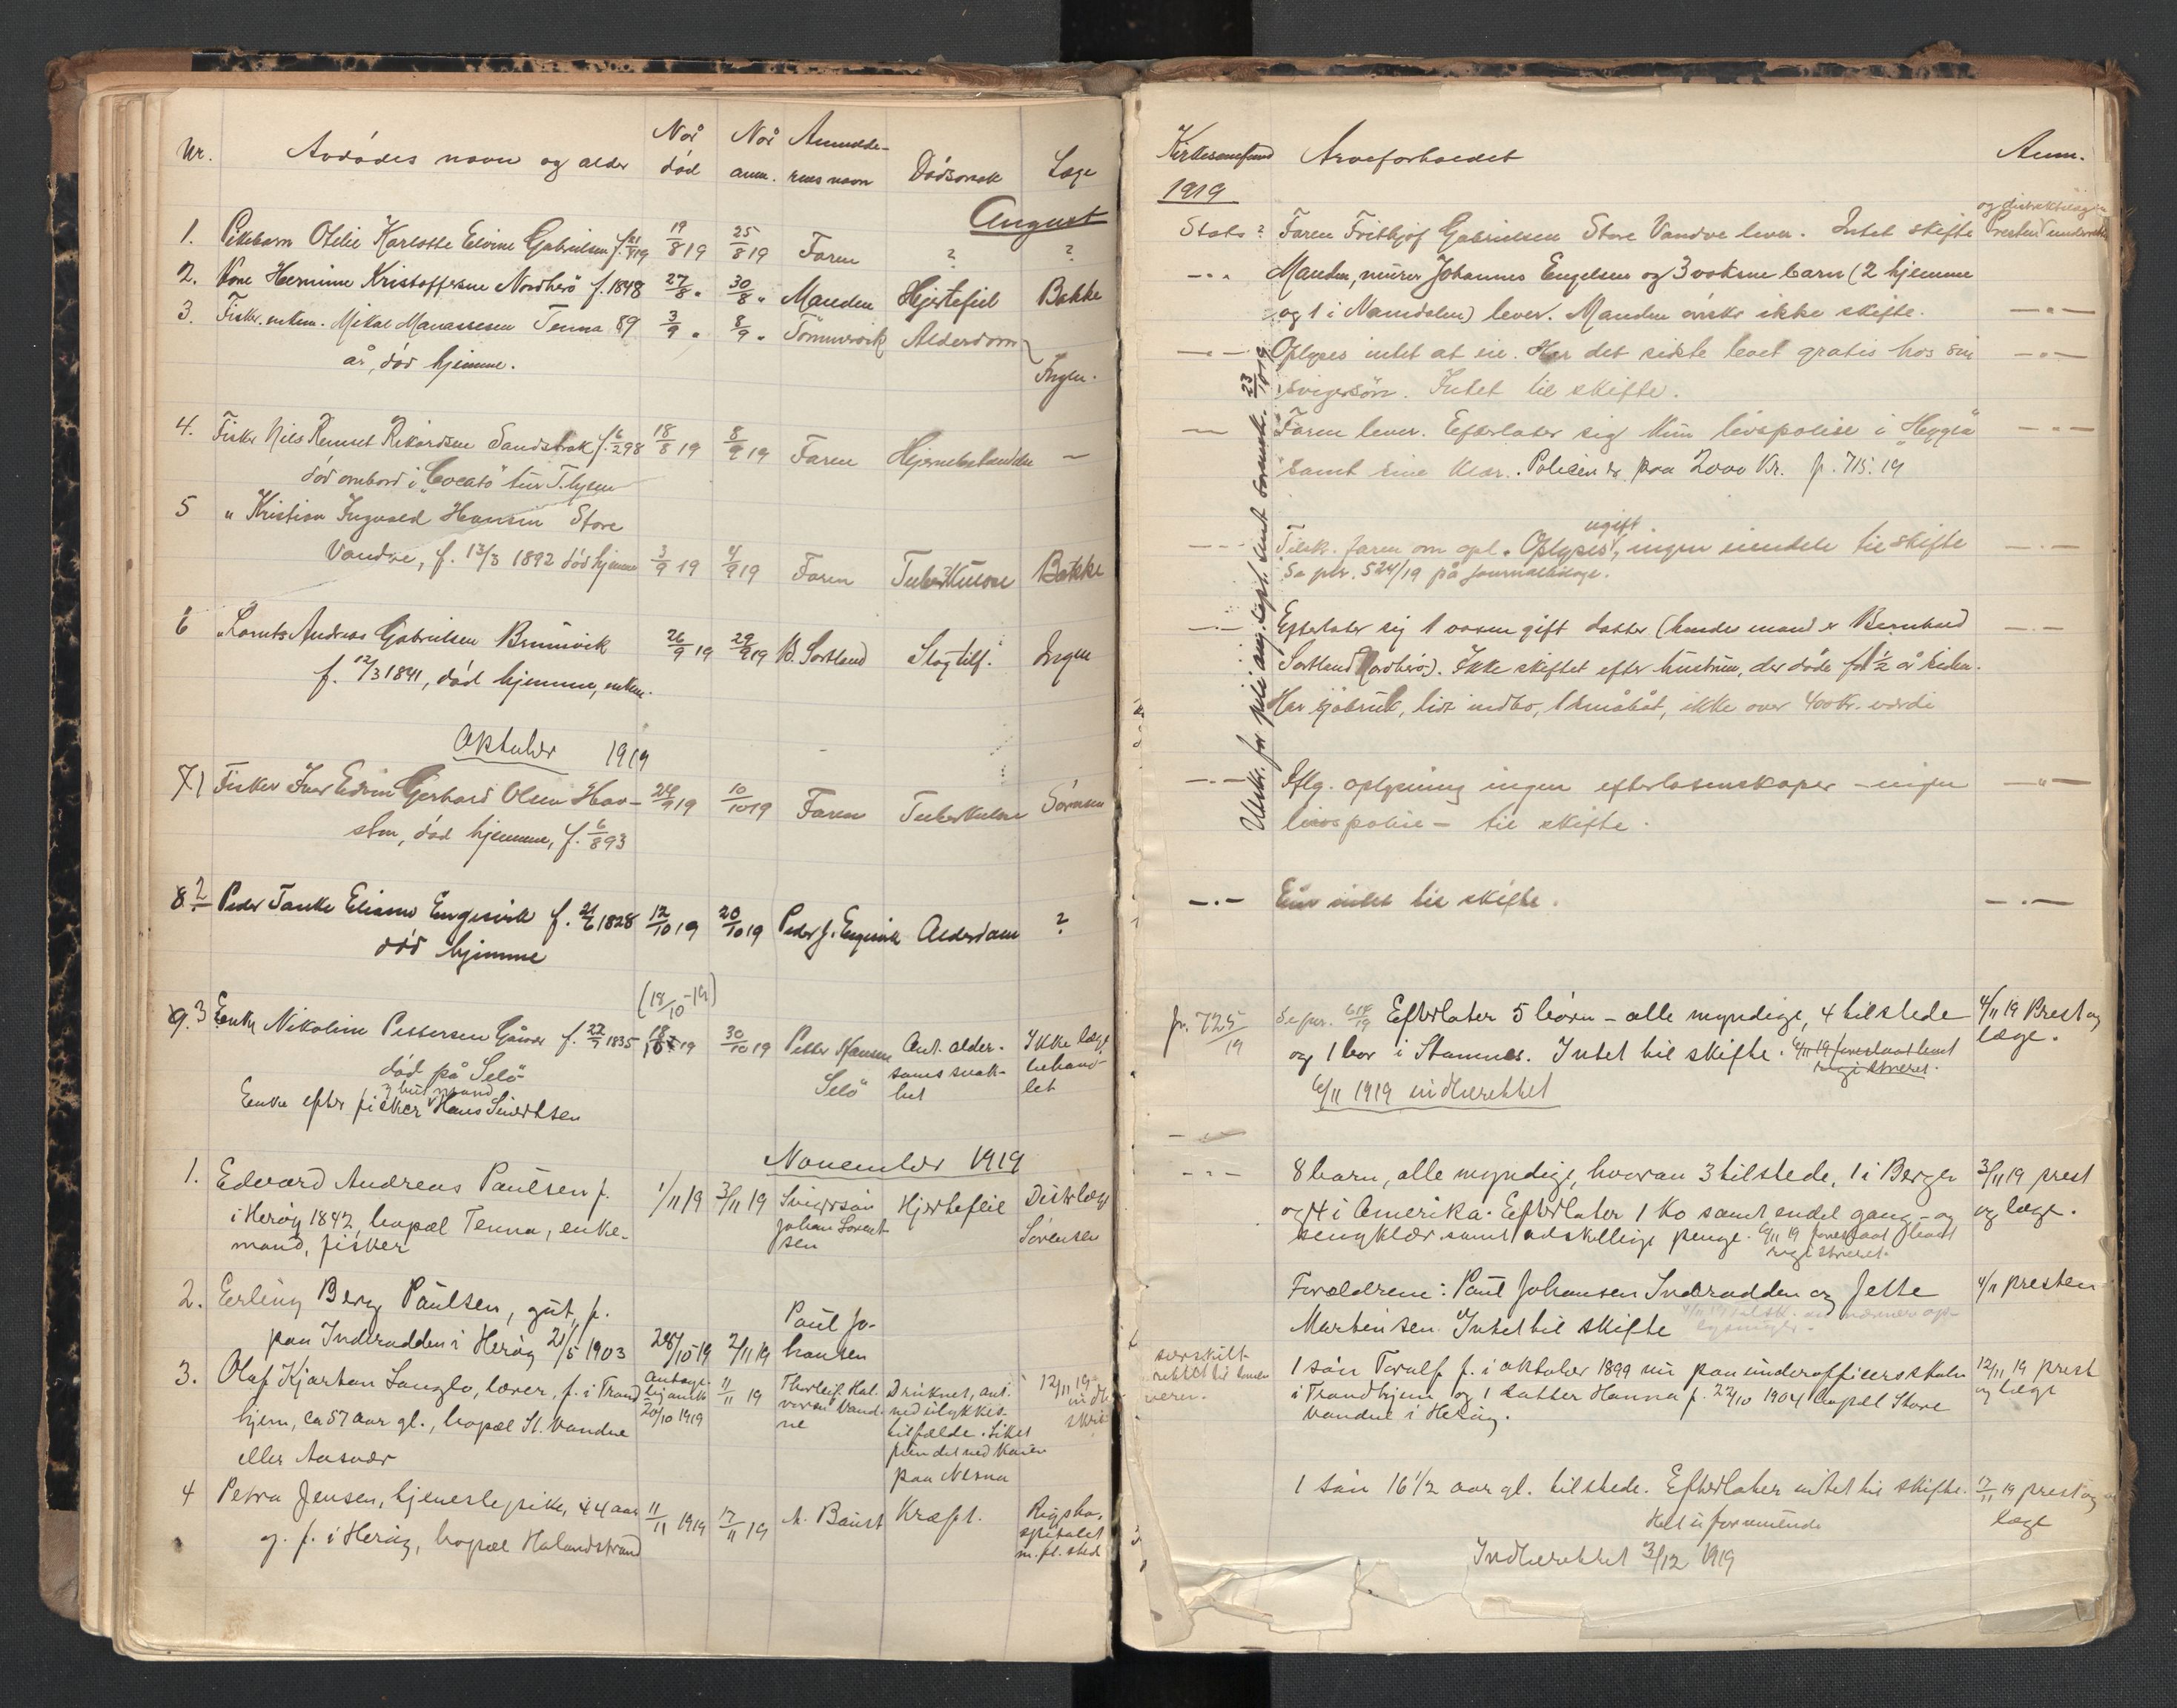 Nr. Avdødes navn og alder Når død Når anm. Anmelde-rens navn Dødsorsak Læge
August
1. Pikebarn Otelie Karlotte Elvine Gabrielsen 19/8 19 25/8 19 Faren ? ?
2. Kone Hermine Kristoffersen Nordherø f. 1848 27/8 " 30/8 " Manden Hjertefeil Bakke
3. Fisker. enkem. Mikal Manassesen Tenna 89 3/9 " 8/9 " Tømmervik Alderdom
år, død hjemme. Ingen.
4. Fisker Nils Remset Rikardsen Sandstrak f. 6/2 98 18/8 19 8/9 19 Faren —
død ombord i "Cocato"
5 " Kristian Ingvald Hansen Store
Vandve, f. 13/3 1892 død hjemme 3/9 19 9/9 19 Faren Tuberkulose Bakke
6 " Lornts Andreas Gabrielsen Brunsvik 26/9 19 29/9 19 B. Sortland Slagtilf. Ingen
f. 12/3 1841, død hjemme, enkem.
Oktober 1919
7 1 Fisker Ivar Edvin Gerhard Olsen Hav- 24/9 19 10/10 19 Faren Tuberkulose Sørensen
stn, død hjemme, f. 6/8 93
8 2 Peder Tanke Eliasen Engesvik f. 21/6 1828 12/10 19 20/10 19 Peder J. Engesvik Alderdom ?
død hjemme
(18/10-19)
9. 3 Enke Nikoline Pettersen Gåsvær f. 27/9 1835 18/10 19 30/10 19 Petter Hansen Ant. alder- Ikke læge
død på Selø Selø doms svak- behand-
het let
Enke efter fisker Hans Sivertsen
November 1919
1. Edvard Andreas Paulsen f. 1/11 19 3/11 19 Svigersøn Hjertefeil Distr.læge
i Herøy 1842, bopæl Tenna, enke- Johan Lorent- Sørensen
mand, fisker sen
2. Erling Berg Paulsen, gut, f. Paul Jo-
paa Indrødden i Herøy 21/5 1903 28/10 19 2/11 19 hansen
3. Olaf Kjartan Langlo, lærer, f. i Trond- Antage- 11/11 19 Thorleif Hal- Druknet, ant. 12/11 19
hjem, ca 57 aar gl., bopæl St. Vandve 20/10 1919 vorsen Vand- ved ulykkes-
eller Aasvær ve tilfælde. Liket
fundet ved kaien
paa Nesna
4 Petra Jensen, tjenestepike, 44 aar 11/11 1919 17/11 19 A. Baust Kræft. Rigsho-
g. f. i Herøy, bopæl Halandstrand spitalet
m. fl. sted
Kirkesamfund Arveforholdet Anm.
1919
og distriktslægen
Stats? Faren Fritbjof Gabrielsen Store Vandve lever. Intet skifte Presten underrettet
—"— Manden, murer Johannes Engelsen og 3 voksne barn (2 hjemme
og 1 i Namdalen) lever. Manden ønsker ikke skifte. —"—
—"— Oplyses intet at eie. Har det sidste levet gratis hos sin —"—
svigersøn. Intet til skifte.
— Faren lever. Efterlater sig kun livspolise i "Hygea" —"—
samt sine klær. Policen er paa 2000 kr. jr. 715.19
ugift
—"— Tilsk. faren om opl. Oplyses, ingen eiendele til skifte —"—
Se jnr. 524/19 på journalbilage.
—"— Efterlater sig 1 voksen gift datter (hendes mand er Bernhard —"—
Sortland Nordherø). Ikke skiftet efter hustruen, der døde for 1/2 år siden.
Har sjøbruk, lidt indbo, 1 småbåt, ikke over 400 kr. værdi
—"— Iflg. oplysning ingen efterlatenskaper - ingen —"—
livspolise — til skifte.
—"— Eier intet til skifte. —"—
jr. 725/19 Se jnr. Efterlater 5 børn - alle myndige, 4 tilstede 4/11 19 Prest og
og 1 bor i Stamnes. Intet til skifte. læge.
registreret.
6/11 1919 indberettet
—"— 8 barn, alle myndige, hvorav 3 tilstede, 1 i Bergen 3/11 19 prest
og 4 i Amerika. Efterlater 1 ko samt endel gang- og og læge.
sengklær samt adskillige penge. 6/11 19
registreret.
Forældrene: Paul Johansen Indrødden og Jette 4/11 presten
Martinsen. Intet til skifte
særskilt 1 søn Toralf f. i oktober 1899 nu paa underofficersskolen 12/11 19 prest
i Trondhjem og 1 datter Hanna f. 22/10 1904 bopæl Store og læge
Vandve i Herøy.
1 søn 16 1/2 aar gl. tilstede. Efterlater intet til skifte. 17/11 19 prest og
Helt uformuende læge
Indberettet 3/12 1919